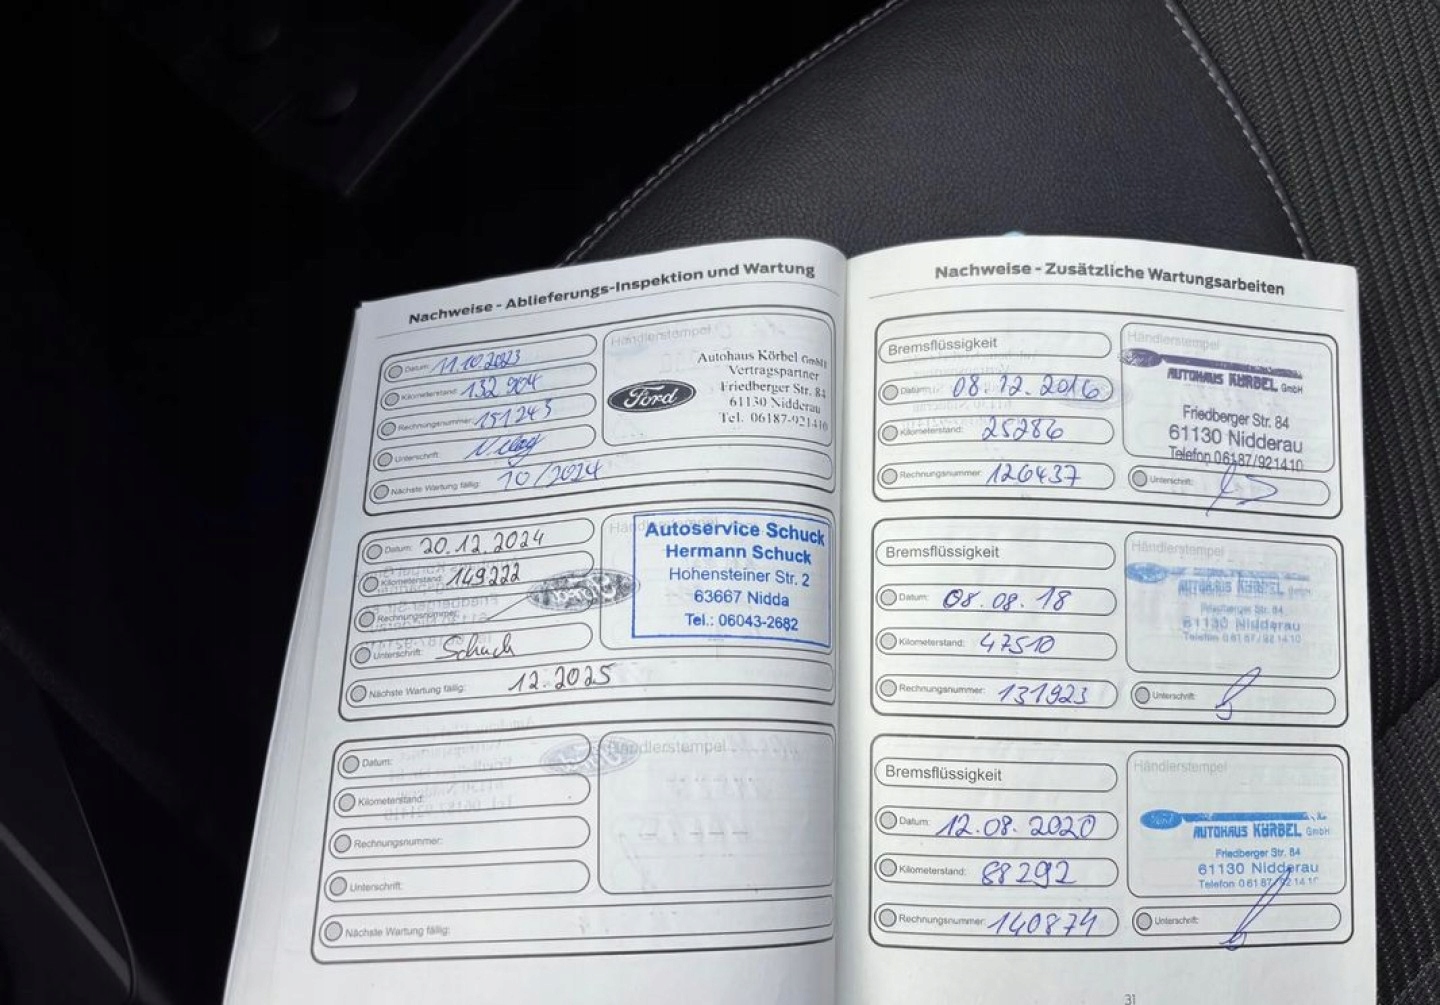 Nachweise - Ablieferungs-Inspektion und Wartung
Datum: 11.10.2023
Kilometerstand: 132 904
Rechnungsnummer: 151243
Unterschrift:
Nächste Wartung fällig: 10/2024
Händlerstempel
Ford
Autohaus Körbel GmbH
Vertragspartner
Friedberger Str. 84
61130 Nidderau
Tel. 06187-921410
Datum: 20.12.2024
Kilometerstand: 149222
Rechnungsnummer:
Unterschrift: Schuck
Nächste Wartung fällig: 12.2025
Autoservice Schuck
Hermann Schuck
Hohensteiner Str. 2
63667 Nidda
Tel.: 06043-2682
Datum:
Kilometerstand:
Rechnungsnummer:
Unterschrift:
Nächste Wartung fällig:
Händlerstempel
Nachweise - Zusätzliche Wartungsarbeiten
Bremsflüssigkeit
Datum: 08.12.2016
Kilometerstand: 25286
Rechnungsnummer: 126437
Händlerstempel
AUTOHAUS KÖRBEL GmbH
Friedberger Str. 84
61130 Nidderau
Telefon 06187/921410
Unterschrift:
Bremsflüssigkeit
Datum: 08.08.18
Kilometerstand: 47510
Rechnungsnummer: 131923
Händlerstempel
AUTOHAUS KÖRBEL GmbH
Friedberger Str. 84
61130 Nidderau
Telefon 06187/921410
Unterschrift:
Bremsflüssigkeit
Datum: 12.08.2020
Kilometerstand: 88292
Rechnungsnummer: 140874
Händlerstempel
AUTOHAUS KÖRBEL GmbH
Friedberger Str. 84
61130 Nidderau
Telefon 06187/921410
Unterschrift:
31